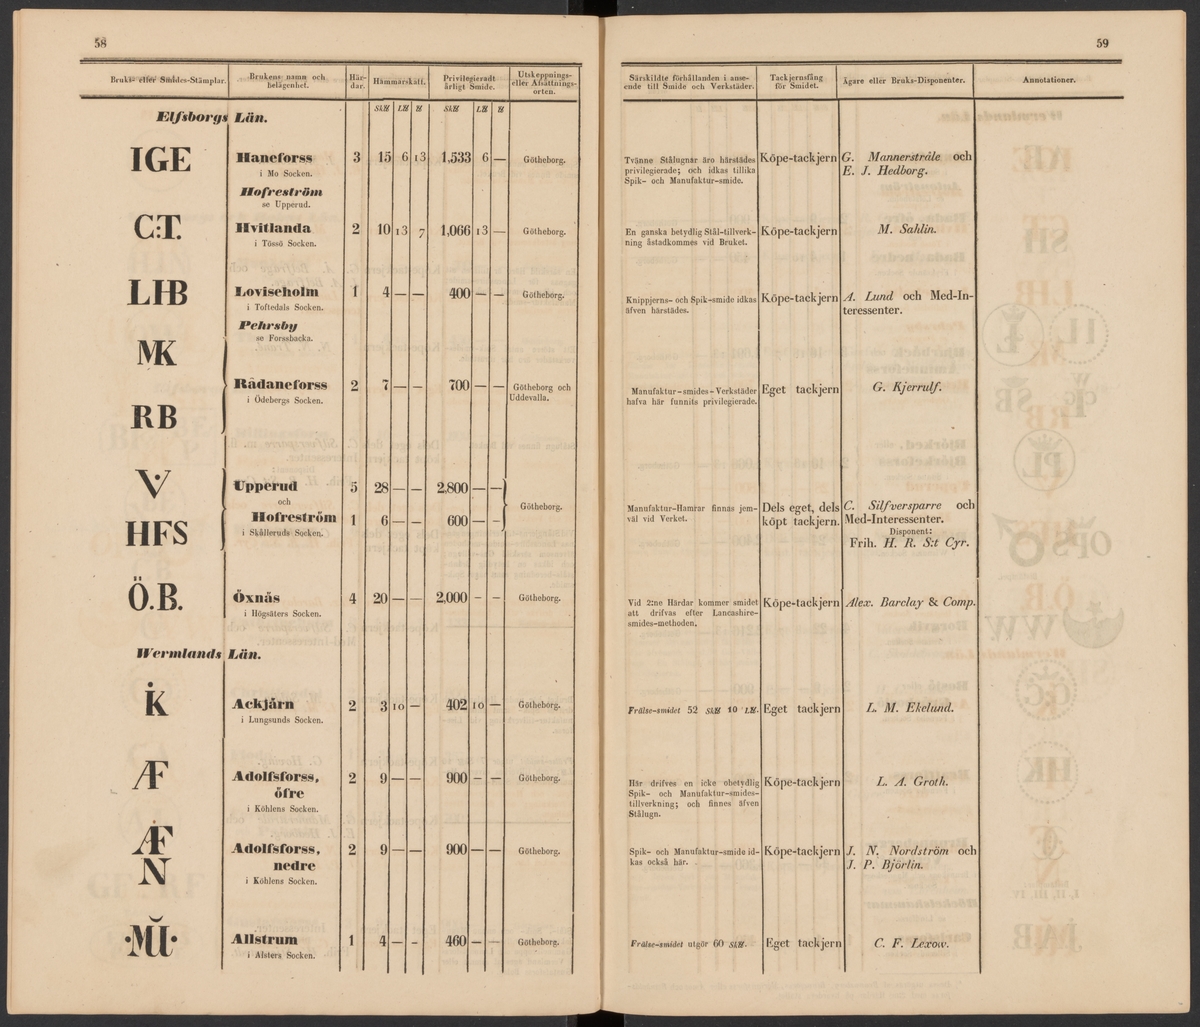 58
Bruks- eller Smides-Stämplar.
Brukens namn och
belägenhet.
Här-
dar.
Hammarskatt.
Privilegieradt
årligt Smide.
Utskeppnings-
eller Afsättnings-
orten.
Elfsborgs Län.
IGE Haneforss 3 15 6 13 1,533 6 — Götheborg.
i Mo Socken.
Hofreström
se Upperud.
C:T. Hvitlanda 2 10 13 7 1,066 13 — Götheborg.
i Tössö Socken.
LHB Loviseholm 1 4 — — 400 — — Götheborg.
i Toftedals Socken.
Pehrsby
se Forssbacka.
MK
Rådaneforss 2 7 — — 700 — — Götheborg och
Uddevalla.
i Ödebergs Socken.
RB
V Upperud 5 28 — — 2,800 — —
och
Götheborg.
HFS Hofreström 1 6 — — 600 — —
i Skålleruds Socken.
Ö.B. Öxnäs 4 20 — — 2,000 — — Götheborg.
i Högsäters Socken.
Wermlands Län.
K Ackjärn 2 3 10 — 402 10 — Götheborg.
i Lungsunds Socken.
ÆF Adolfsforss, 2 9 — — 900 — — Götheborg.
öfre
i Köhlens Socken.
ÆF Adolfsforss, 2 9 — — 900 — — Götheborg.
N nedre
i Köhlens Socken.
·MU· Allstrum 1 4 — — 460 — — Götheborg.
i Alsters Socken.
59
Särskildte förhållanden i anse-
ende till Smide och Verkstäder.
Tackjernsfång
för Smidet.
Ägare eller Bruks-Disponenter.
Annotationer.
Tvänne Stålugnar äro härstädes
privilegierade; och idkas tillika
Spik- och Manufaktur-smide.
Köpe-tackjern
G. Mannerstråle och
E. J. Hedborg.
En ganska betydlig Stål-tillverk-
ning åstadkommes vid Bruket.
Köpe-tackjern
M. Sahlin.
Knippjerns- och Spik-smide idkas
äfven härstädes.
Köpe-tackjern
A. Lund och Med-In-
teressenter.
Manufaktur-smides-Verkstäder
hafva här funnits privilegierade.
Eget tackjern
G. Kjerrulf.
Manufaktur-Hamrar finnas jem-
väl vid Verket.
Dels eget, dels
köpt tackjern.
C. Silfversparre och
Med-Interessenter.
Disponent:
Frih. H. R. S:t Cyr.
Vid 2:ne Härdar kommer smidet
att drifvas efter Lancashire-
smides-methoden.
Köpe-tackjern
Alex. Barclay & Comp.
Frälse-smidet 52 Sk℔ 10 L℔.
Eget tackjern
L. M. Ekelund.
Här drifves en icke obetydlig
Spik- och Manufaktur-smides-
tillverkning; och finnes äfven
Stålugn.
Köpe-tackjern
L. A. Groth.
Spik- och Manufaktur-smide id-
kas också här.
Köpe-tackjern
J. N. Nordström och
J. P. Björlin.
Frälse-smidet utgör 60 Sk℔.
Eget tackjern
C. F. Lexow.